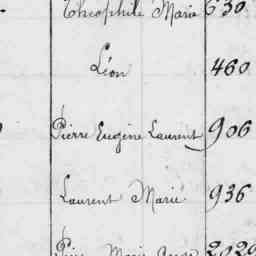 Théophile Marie 630
Léon 460
Pierre Eugène Laurent 906
Laurent Marie 936
Marie